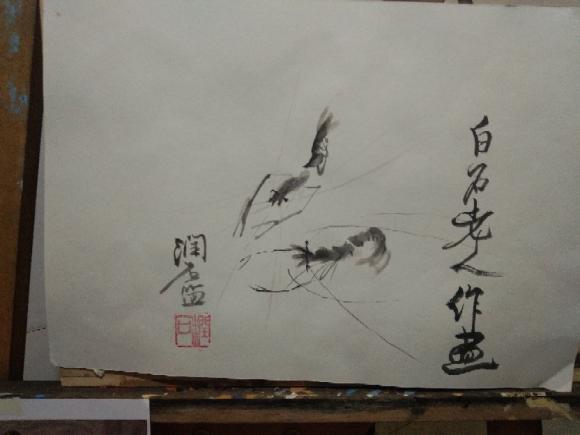 白石老人作画
润石
潤石